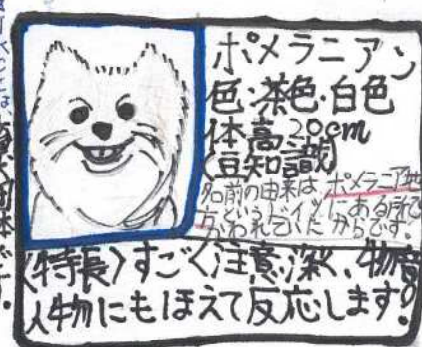 ポメラニアン
色:茶色・白色
体高20cm
(豆知識)
名前の由来は、ポメラニア地
というドイツにある所で
かわれていたからです。
<特長>すごく注意深く、物音
人物にもほえて反応します!